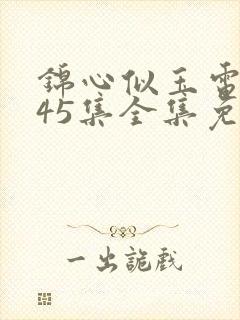 锦心似玉电
45集全集免
一出詭戲